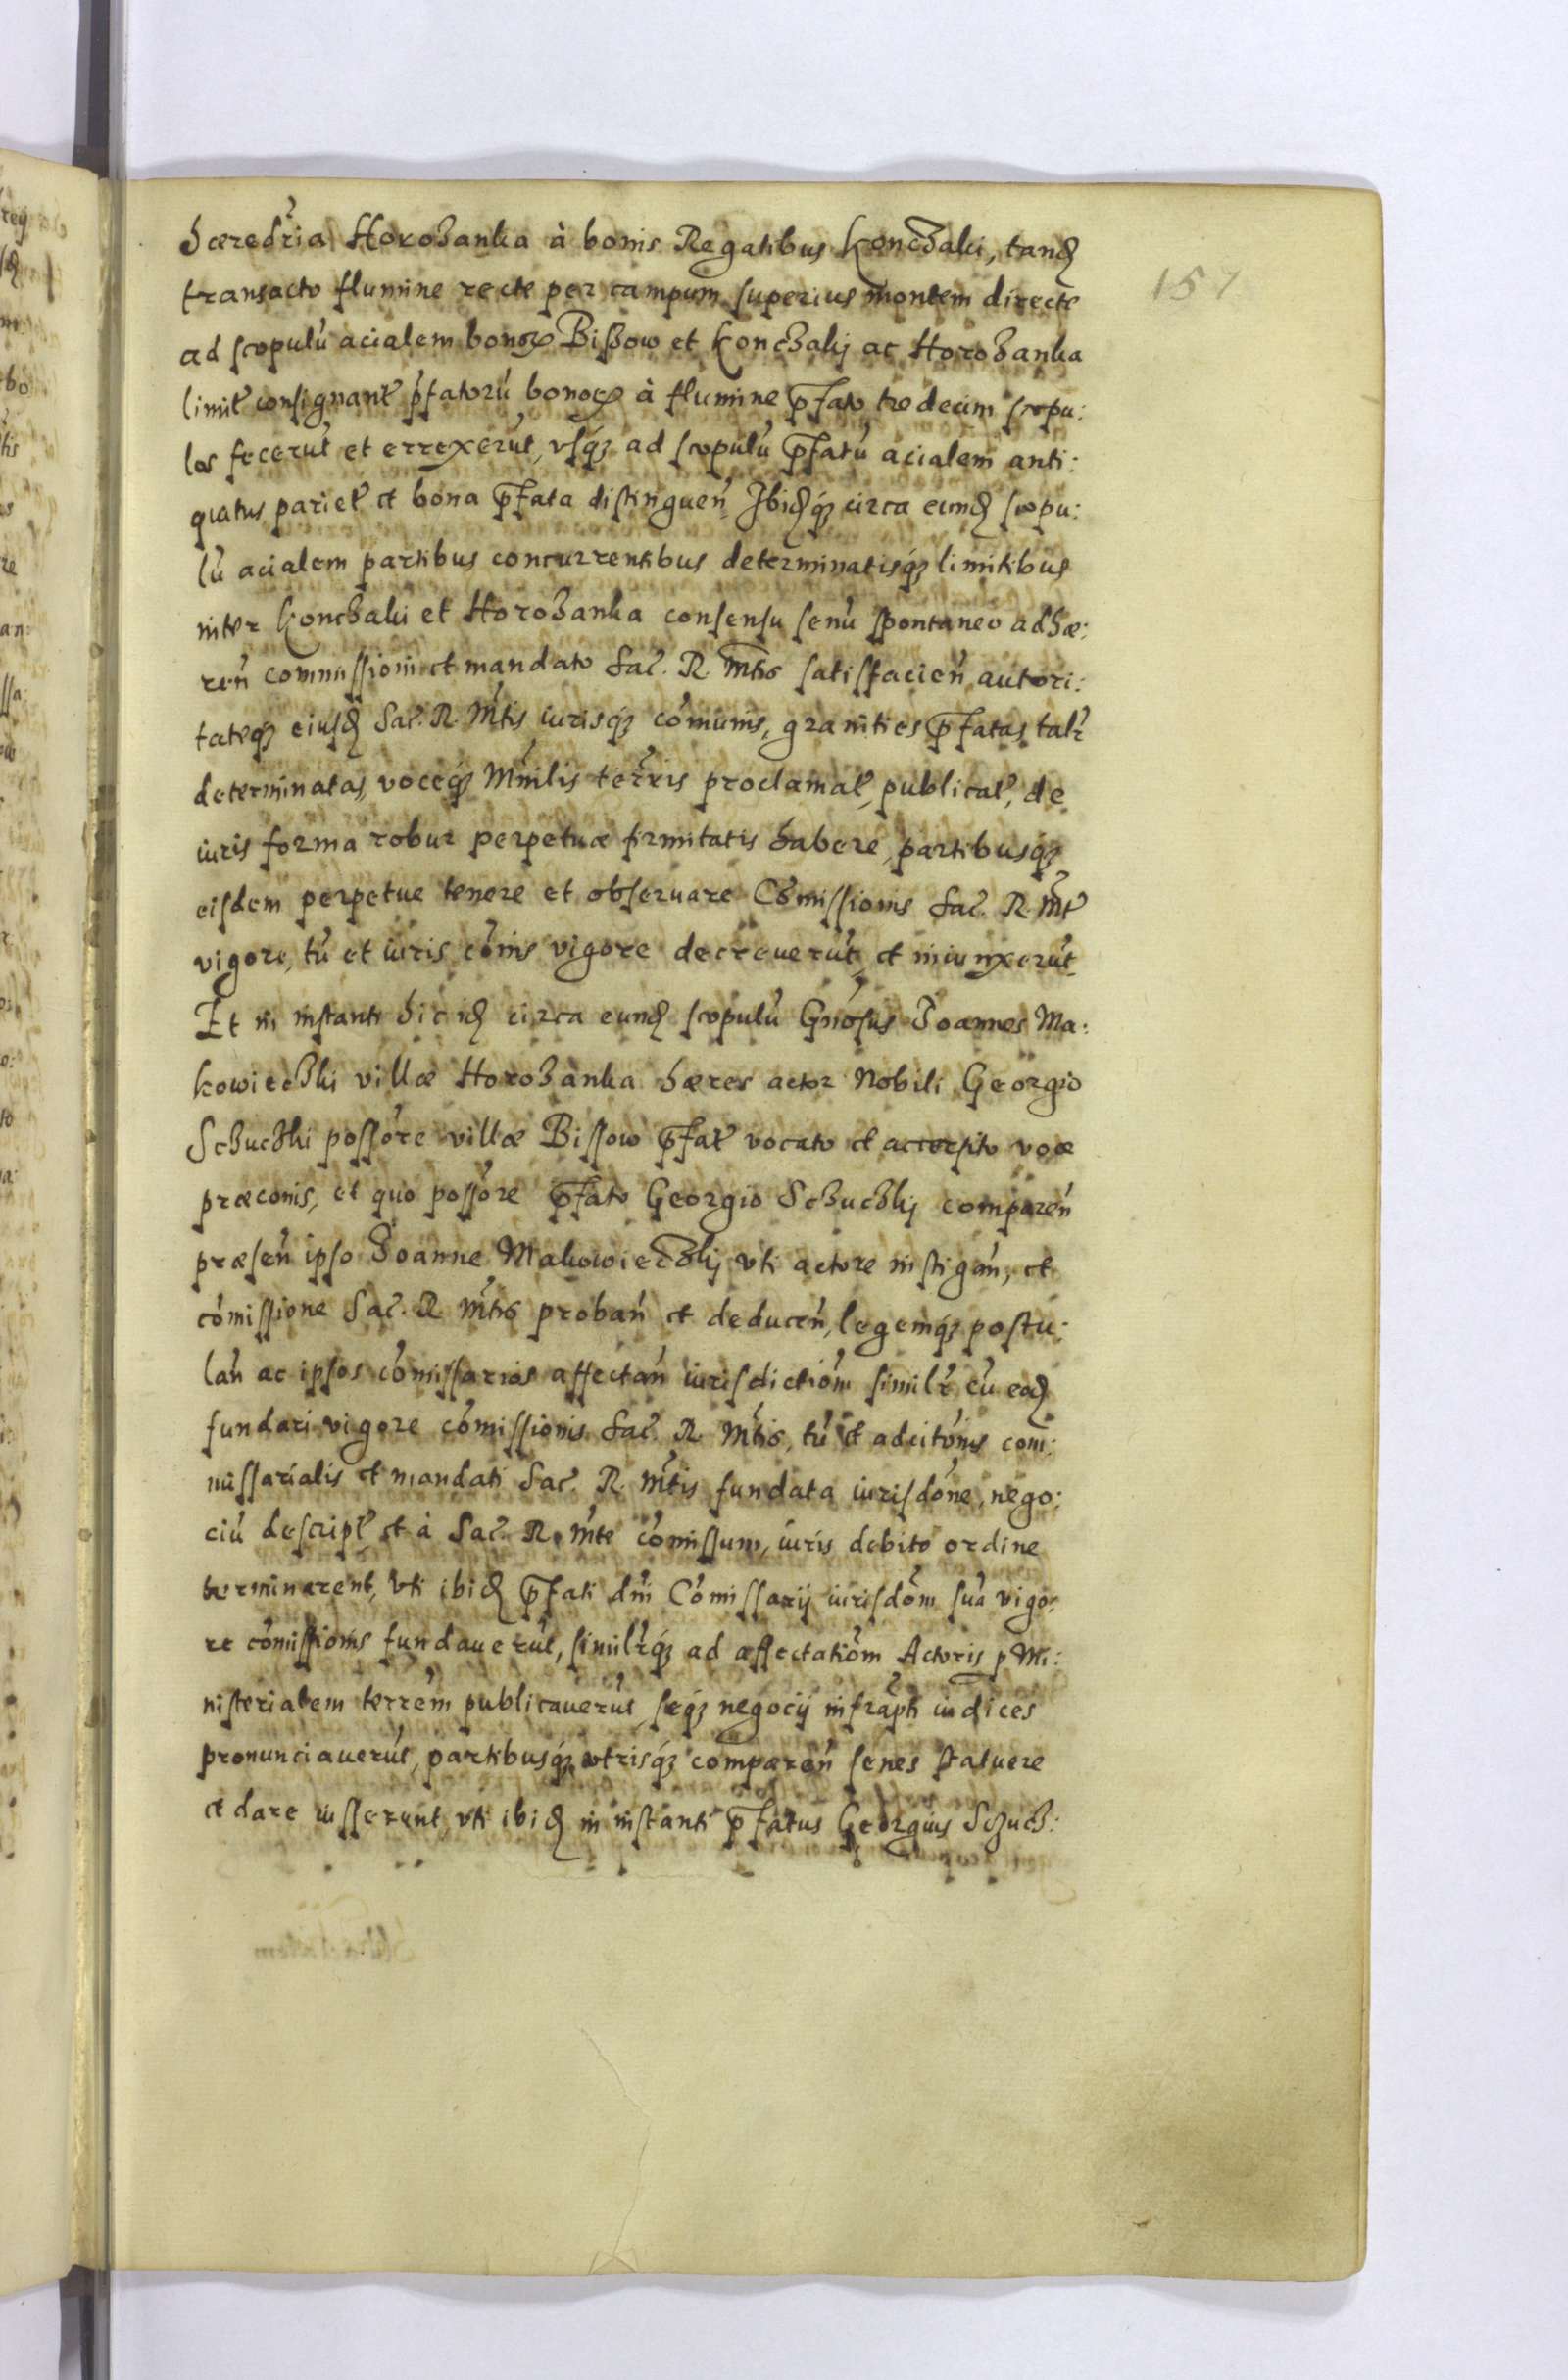 hæredr̃ia Horożanka à bonis Regalibus Konczaki, tandẽ
transacto flumine recte per campum superius montem directe
ad scopulũ acialem bonoꝝ Bissow et Konczakj ac Horożanka
limit̃ consignant̃ p̃fatorũ bonoꝝ à flumine p̃fato tredecim scopu:
los fecerũt et errexerũt, vsq́ꝫ ad scopulũ p̃fatũ acialem anti:
quatus pariet̃ et bona p̃fata distinguen̄ Ibidẽq́ꝫ circa eundẽ scopu:
lũ acialem partibus concurrentibus determinatisq́ꝫ limitibus
inter Konczaki et Horożanka consensu senũ spontaneo adhæ:
ren̄ commissioni et mandato Sac̃. R. Mt̃is satisfacien̄ autori:
tateq́ꝫ eiusdẽ Sac̃. R. Mt̃is iurisq́ꝫ cõmunis, granities p̃fatas talr̃
determinatas, voceq́ꝫ Mñilis terr̃ris proclamat̃, publicat̃, de
iuris forma robur perpetuæ firmitatis habere, partibusq́ꝫ
eisdem perpetue tenere et obseruare Cõmissionis Sac̃. R. Mt̃
vigore, tũ et iuris cõnis vigore decreuerũt, et iniunxerũt
Et in instanti hic idẽ circa eundẽ scopulũ Gñosus Joannes Ma:
kowieczki villæ Horożanka hæres actor Nobili Georgio
Sczuczki possõre villæ Bissow p̃fat̃ vocato et accersito voce
præconis, et quo possõre p̃fato Georgio Sczuczkj comparen̄
præsen̄ ipso Joanne Makowieczkij vti actore instigan̄, et
cõmissione Sac̃. R Mt̃is proban̄ et deducen̄, legemq́ꝫ postu:
lan̄ ac ipsos cõmissarios affectan̄ iurisdictiõm similr̃ cũ eadẽ
fundari vigore cõmissionis Sac̃. R. Mt̃is, tũ et adcitõnis com:
missarialis et mandati Sac̃. R. Mt̃is fundata iurisdõne, nego:
ciũ descript̃ et à Sac̃. R. Mt̃e cõmissum, iuris debito ordine
terminarent, vti ibidẽ p̃fati dñi Cõmissarij iurisdõm suã vigo:
re cõmissionis fundauerũt, similr̃q́ꝫ ad affectatiõm Actoris p Mi:
nisterialem terrẽm publicauerũt, seq́ꝫ negocij infrap̃ti iudices
pronunciauerũt, partibusq́ꝫ vtrisq́ꝫ comparen̄ senes statuere
et dare iusserunt, vti ibidẽ in instanti p̃fatus Georgius Sczucz:
157